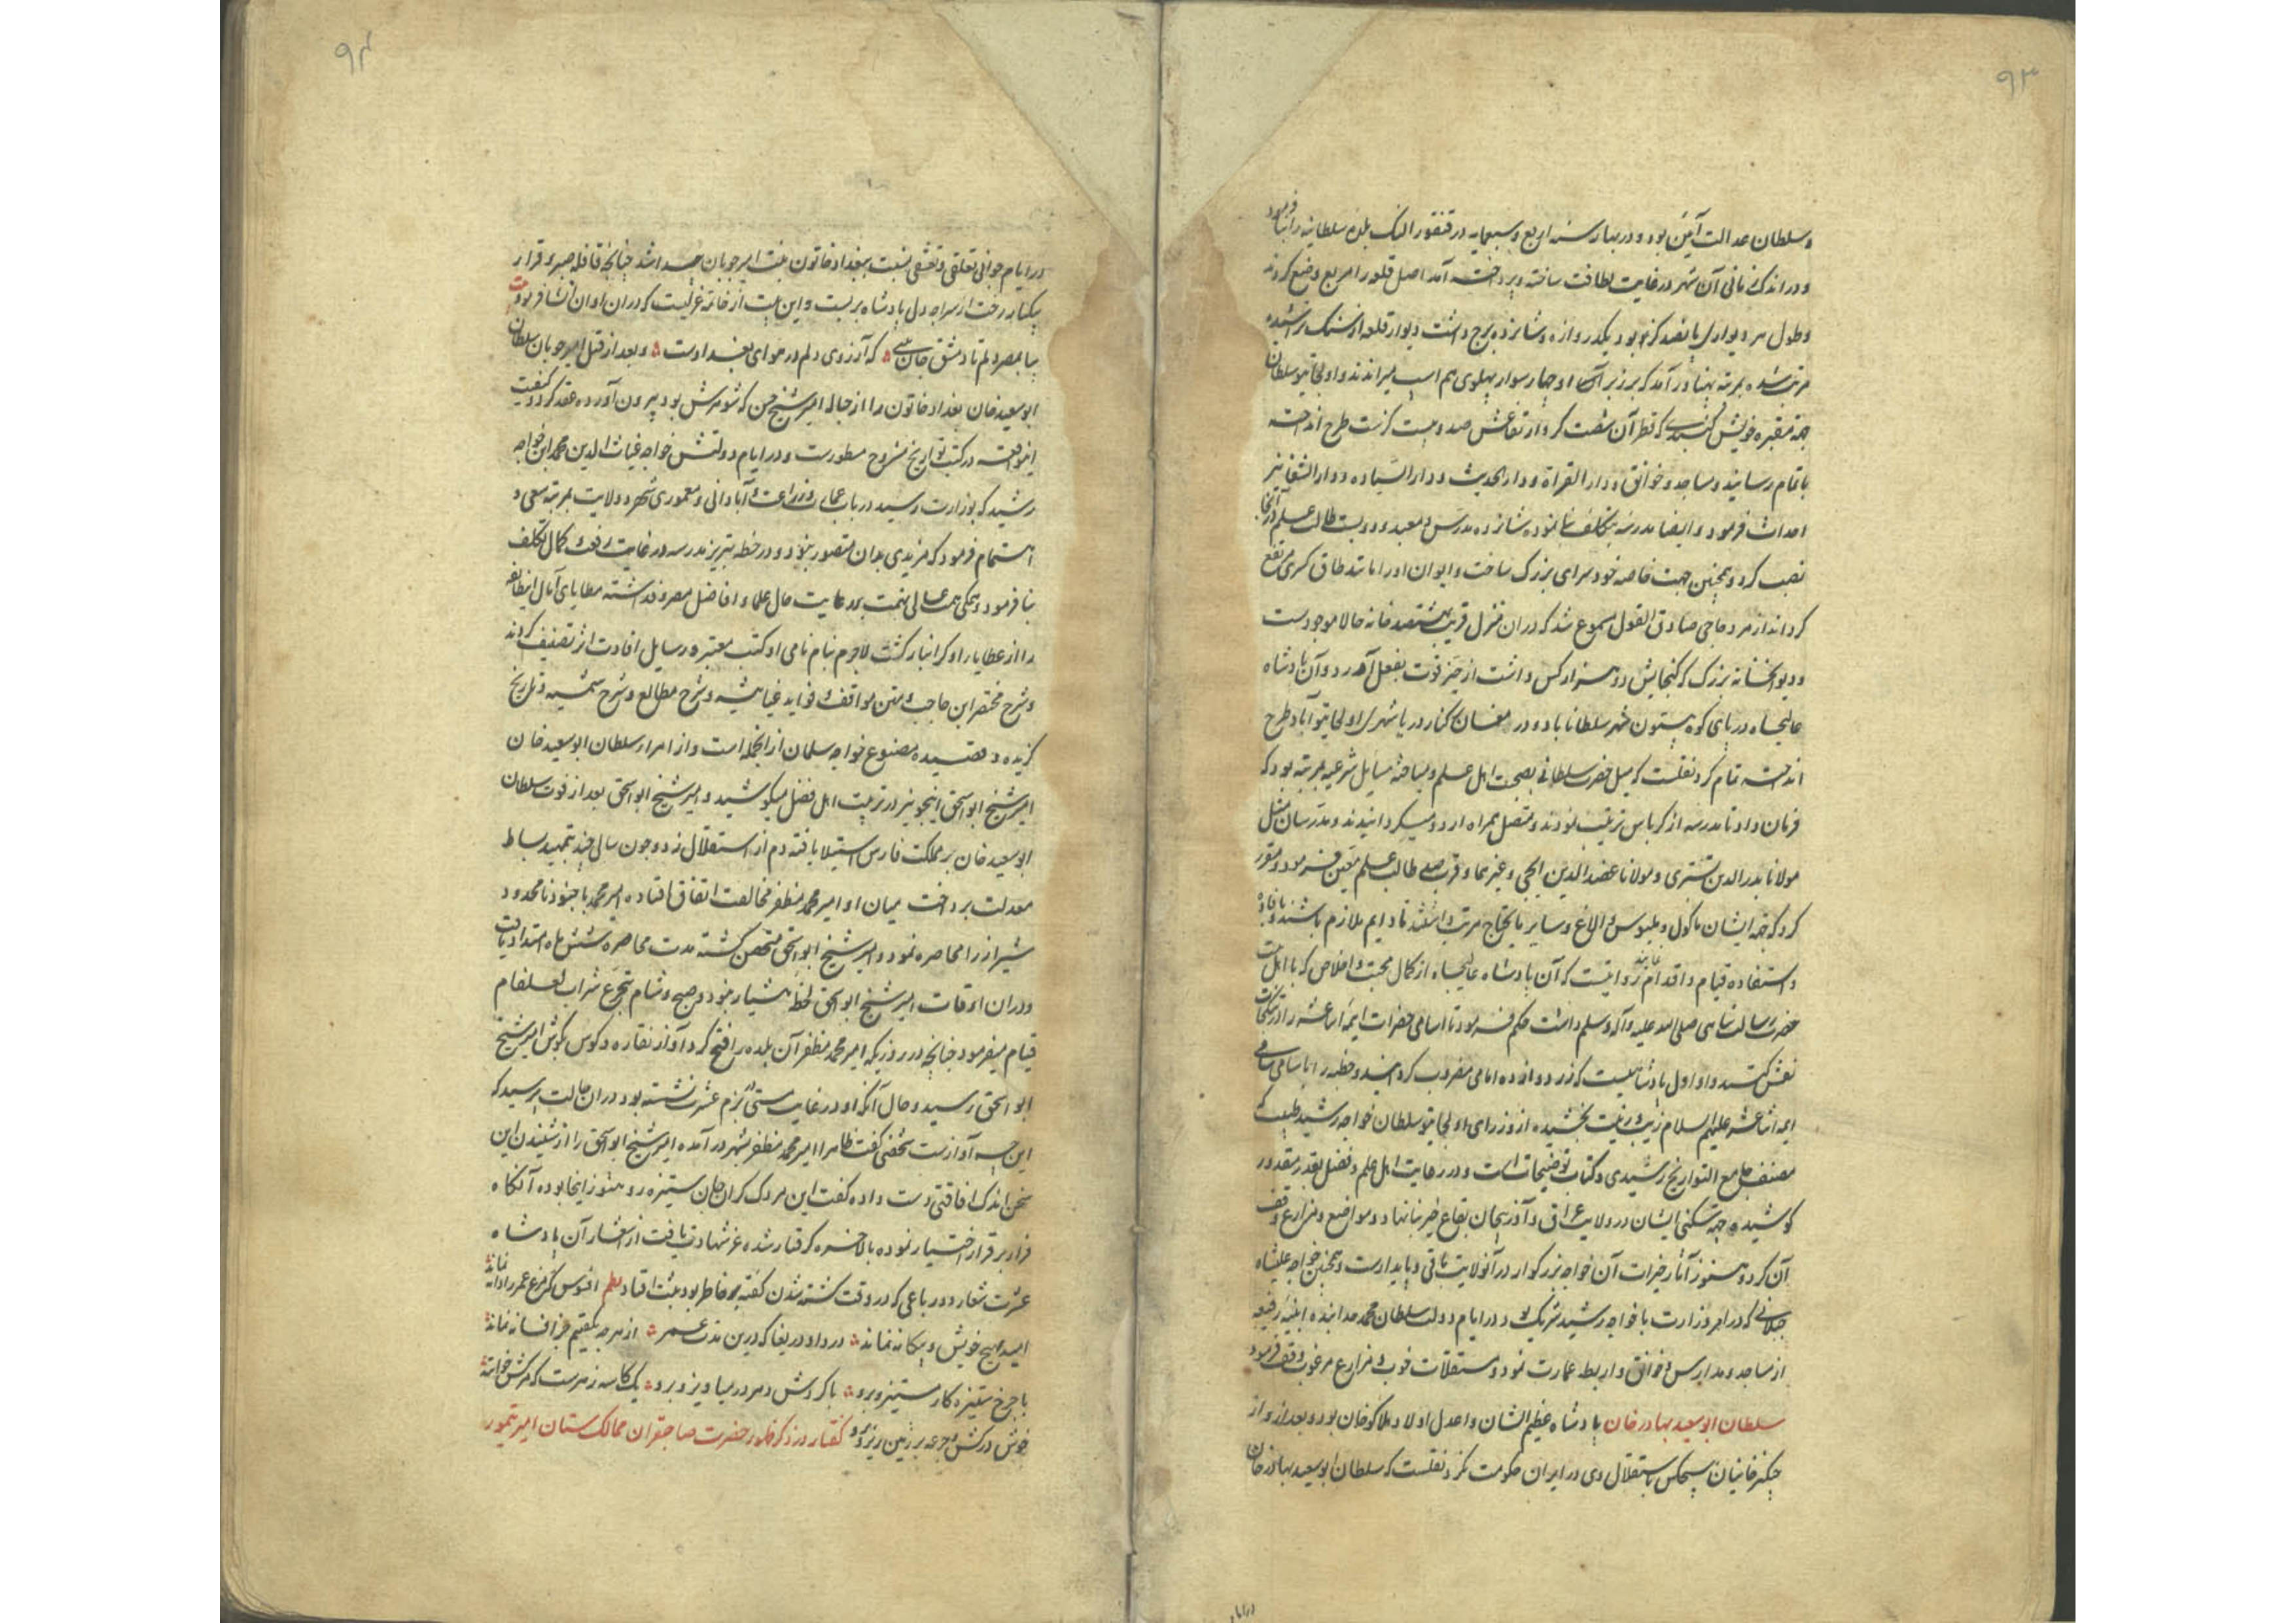 ۹۳
و سلطان عدالت آیین بود و در بهار سنه اربع و سبعمایه در قنقور النک بلده سلطانیه را بنا فرمود
و در اندک زمانی آن شهر در غایت لطافت ساخته و پرداخته آمد اصل قلعه را مربع وضع کردند
و طول هر دیواری پانصد گز بود و یکدروازه و شانزده برج داشت دیوار قلعه از سنگ تراشیده
مرتب شده بمرتبه پهنا در آمد که بر زبر آن چهار سوار پهلوی هم اسب میراندند و اولجایتو سلطان
جهة مقبره خویش گنبدی که قطر آن شصت گز و ارتفاعش صد و بیست گزست طرح انداخته
باتمام رسانید و مساجد و خوانق و دار القراة و دار الحدیث و دار السیاده و دار الشفا نیز
احداث فرمود و ایضا مدرسه بتکلف بنا نموده شانزده مدرس و معید و دویست طالب علم در آنجا
نصب کرد و همچنین جهت خاصه خود سرای بزرگ ساخت و ایوان او را مانند طاق کسری مرتفع
گردانید از مرد حاجی صادق القول مسموع شد که در آن منزل قریب هشتصد خانه حالا موجودست
و دیوانخانه بزرگ که گنجایش دو هزار کس داشت از حیز قوت بفعل آورد و آن پادشاه
عالیجاه در پای کوه بیستون شهر سلطاناباد و در مغان کنار دریا شهر اولجایتو آباد طرح
انداخته تمام کرد نقلست که میل حضرت سلطانی بصحبت اهل علم و مباحثه مسایل شرعیه بمرتبه بود که
فرمان داد تا مدرسه از کرباس ترتیب نمودند و متصل همراه اردو میگردانیدند و مدرسان مثل
مولانا بدر الدین تستری و مولانا عضد الدین ایجی و غیرهما و قرب صد طالب علم معین فرمود و مقرر
کرد که جهة ایشان ماکول و ملبوس و الاغ و سایر مایحتاج مرتب داشتند تا دایم ملازم باشند و بافاده
و استفاده قیام و اقدام نمایند و ثابتست که آن پادشاه عالیجاه از کمال محبت و اخلاص که با اهل بیت
حضرت رسالت پناهی صلی الله علیه و آله و سلم داشت حکم فرمود تا اسامی حضرات ایمه اثنا عشر را در سکه
نقش کنند و او اول پادشاهیست که زر دوازده امامی مضروب گردانید و خطبه را باسامی سامی
ایمه اثنا عشر علیهم السلام زیب و زینت بخشیده از وزرای اولجایتو سلطان خواجه رشید طبیب که
مصنف جامع التواریخ رشیدی و کتاب توضیحات است و در رعایت اهل علم و فضل بقدر مقدور
کوشیده جهة سکنی ایشان در ولایت عراق و آذربیجان بقاع خیر بنا نهاد و مواضع و مزارع وقف
آن کرد و هنوز آثار خیرات آن خواجه بزرگوار در آنولایت باقی و پایدارست و همچنین خواجه علیشاه
جیلانی که در امر وزارت با خواجه رشید شریک بود در ایام دولت سلطان محمد خدابنده ابنیه رفیعه
از مساجد و مدارس و خوانق و اربطه عمارت نمود و مستقلات خوب و مزارع مرغوب وقف فرمود
سلطان ابو سعید بهادر خان پادشاه عظیم الشان و اعدل اولاد هلاکو خان بود و بعد از او از
چنگیز خانیان هیچکس باستقلال وی در ایران حکومت نکرد نقلست که سلطان ابو سعید بهادر خان
در ایام
۹۴
در ایام جوانی تعلقی و تعشقی نسبت ببغداد خاتون بنت امیر چوبان پیدا شد چنانچه قافله صبر و قرار
بیکبار رخت از سراچه دل پادشاه بر بست و این بیت از خاتمه غزلیست که در آن اوان انشا فرموده بیت
بیا بمصر دلم تا دمشق جان بینی که آرزوی دلم در هوای بغدادست و بعد از قتل امیر چوبان سلطان
ابو سعید خان بغداد خاتون را از حباله امیر شیخ حسن که شوهرش بود بیرون آورده عقد کرد و کیفیت
اینواقعه در کتب تواریخ مشروح مسطورست و در ایام دولتش خواجه غیاث الدین محمد ابن خواجه
رشید که بوزارت رسید در باب عمارت و زراعت و آبادانی و معموری شهر و ولایت بمرتبه سعی و
اهتمام فرمود که مزیدی بدان متصور نبود و در خطه تبریز مدرسه در غایت رفعت و کمال تکلف
بنا فرمود و همگی همت عالی نهمت بر رعایت حال علما و افاضل مصروف داشته مطایای آمال ایطایفه
را از عطایا و گرانبار گشت لاجرم بنام نامی او کتب معتبره و رسایل افادت اثر تصنیف کردند
و شرح مختصر ابن حاجب و متن مواقف و فواید غیاثیه و شرح مطالع و شرح شمسیه و تاریخ
گزیده و قصیده مصنوع خواجه سلمان از آنجمله است و از امراء سلطان ابو سعید خان
امیر شیخ ابو اسحق اینجو نیز در تربیت اهل فضل میکوشید و امیر شیخ ابو اسحق بعد از فوت سلطان
ابو سعید خان بر مملکت فارس استیلا یافته دم از استقلال زد و چون سالی چند بتمهید بساط
معدلت پرداخت میان او و امیر محمد مظفر مخالفت اتفاق افتاده امیر محمد با جنود نامحدود
شیراز را محاصره نمود و امیر شیخ ابو اسحق متحصن گشته مدت محاصره شش ماه امتداد یافت
و در آن اوقات امیر شیخ ابو اسحق لحظه هشیار نبود و صبح و شام بتجرع شراب لعلفام
قیام میفرمود چنانچه در روزیکه امیر محمد مظفر آن بلده را فتح کرد آواز نقاره و کوس بگوش امیر شیخ
ابو اسحق رسید و حال آنکه او در غایت مستی ببزم عشرت نشسته بود در آن حالت پرسید که
این چه آوازست شخصی گفت ظاهرا امیر محمد مظفر بشهر در آمده امیر شیخ ابو اسحق را از شنیدن این
سخن اندک افاقتی دست داده گفت این مردک گران جان ستیزه رو هنوز اینجا بوده آنگاه
فرار بر قرار اختیار نموده بالاخره گرفتار شده عز شهادت یافت از اشعار آن پادشاه
عشرت شعار دو رباعی که در وقت کشته شدن گفته بر خاطر بود ثبت افتاد نظم افسوس که مرغ عمر را دانه نماند
امید بهیچ خویش و بیگانه نماند دردا و دریغا که درین مدت عمر از هر چه بگفتیم جز افسانه نماند
با چرخ ستیزه کار مستیز و برو با گردش دهر در میاویز و برو یک کاسه زهرست که مرگش خوانند
خوش درکش و جرعه بر زمین ریز و برو گفتار در ذکر ظهور حضرت صاحبقران ممالک ستان امیر تیمور